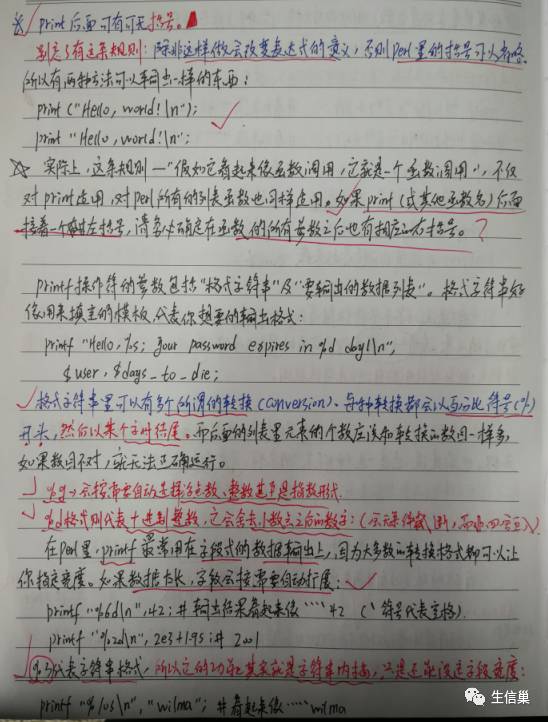 ※ print后面可有可无括号。
别忘了有这条规则：除非这样做会改变表达式的意义，否则Perl里的括号可以省略。
所以有两种方法可以输出一样的东西：
print ("Hello, world!\n");
print "Hello, world!\n";
☆ 实际上，这条规则—"假如它看起来像函数调用，它就是一个函数调用"，不仅
对print适用，对Perl所有的列表函数也同样适用。如果print（或其他函数名）后面
接着一个左括号，请务必确定在函数的所有参数之后也有相应的右括号。？
printf操作符的参数包括"格式字符串"及"要输出的数据列表"。格式字符串好
像用来填空的模板，代表你想要的输出格式：
printf "Hello, %s; your password expires in %d day!\n",
$user, $days_to_die;
✓ 格式字符串里可以有多个所谓的转换（conversion）、每种转换都会以百分比符号（%）
开头，然后以某个字母结尾。而后面的列表里元素的个数应该和转换的数目一样多，
如果数目不对，就无法正确运行。
%g → 会按需要自动选择浮点数、整数甚至是指数形式.
%d格式则代表十进制整数，它会舍去小数点之后的数字：（会无条件截断，而非四舍五入）
在Perl里，printf最常用在字段式的数据输出上，因为大多数的转换格式都可以让
你指定宽度。如果数据太长，字段会按需要自动扩展：
printf "%6d\n", 42; # 输出结果看起来像````42 (`符号代表空格).
printf "%2d\n", 2e3+1.95; # 2001
%s代表字符串格式，所以它的功能其实就是字符串内插，只是还能设定字段宽度：
printf "%10s\n", "wilma"; # 看起来像`````wilma
生信巢